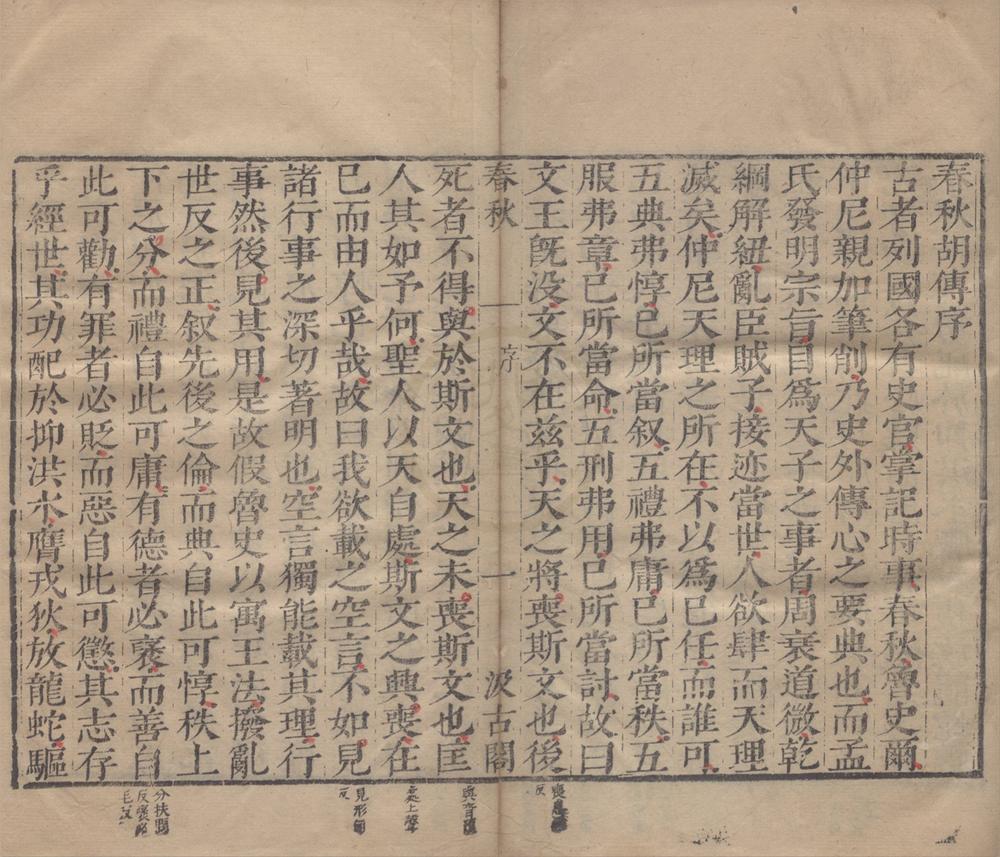 春秋胡傳序
古者列國各有史官掌記時事春秋魯史爾
仲尼親加筆削乃史外傳心之要典也而孟
氏發明宗旨目爲天子之事者周衰道微乾
綱解紐亂臣賊子接迹當世人欲肆而天理
滅矣仲尼天理之所在不以爲已任而誰可
五典弗惇已所當叙五禮弗庸已所當秩五
服弗章已所當命五刑弗用已所當討故曰
文王旣没文不在兹乎天之將喪斯文也後
春秋 序 一 汲古閣
死者不得與於斯文也天之未喪斯文也匡
人其如予何聖人以天自處斯文之興喪在
已而由人乎哉故曰我欲載之空言不如見
諸行事之深切著明也空言獨能載其理行
事然後見其用是故假魯史以寓王法撥亂
世反之正叙先後之倫而典自此可惇秩上
下之分而禮自此可庸有德者必褒而善自
此可勸有罪者必貶而惡自此可懲其志存
乎經世其功配於抑洪水膺戎狄放龍蛇驅
喪息
反
與音
處上聲
見形甸
反
分扶問
反褒
毛反